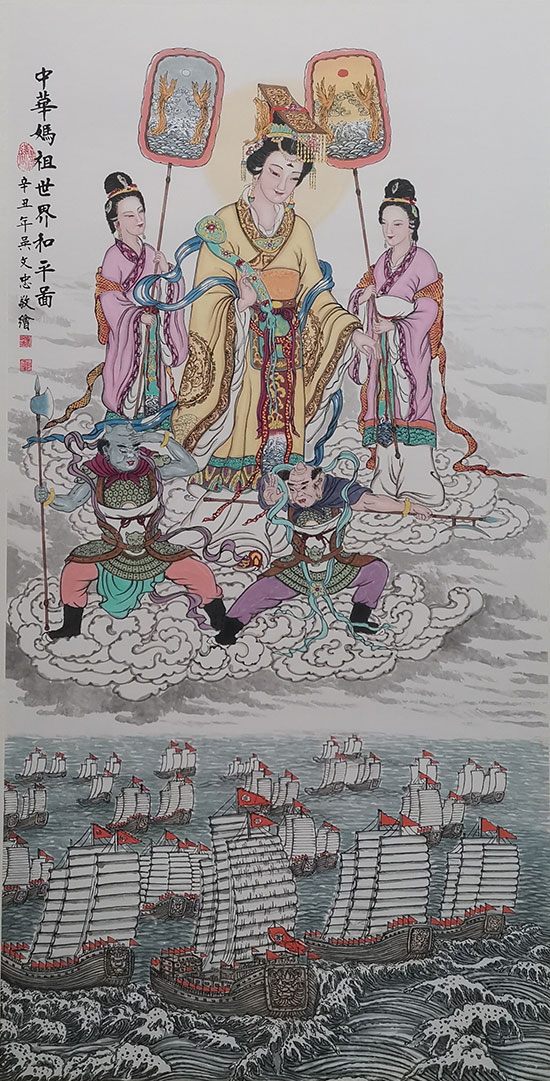 中華媽祖世界和平圖
辛丑年吳文忠敬繪